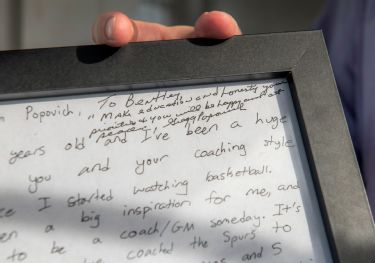 Popovich, To Bentley,
"Make education and honesty your
priorities & you will be happy and
years old and I've been a huge
you and your coaching style
I started watching basketball.
a big inspiration for me, and
to be a coach/GM someday. It's
coached the Spurs to
and 5